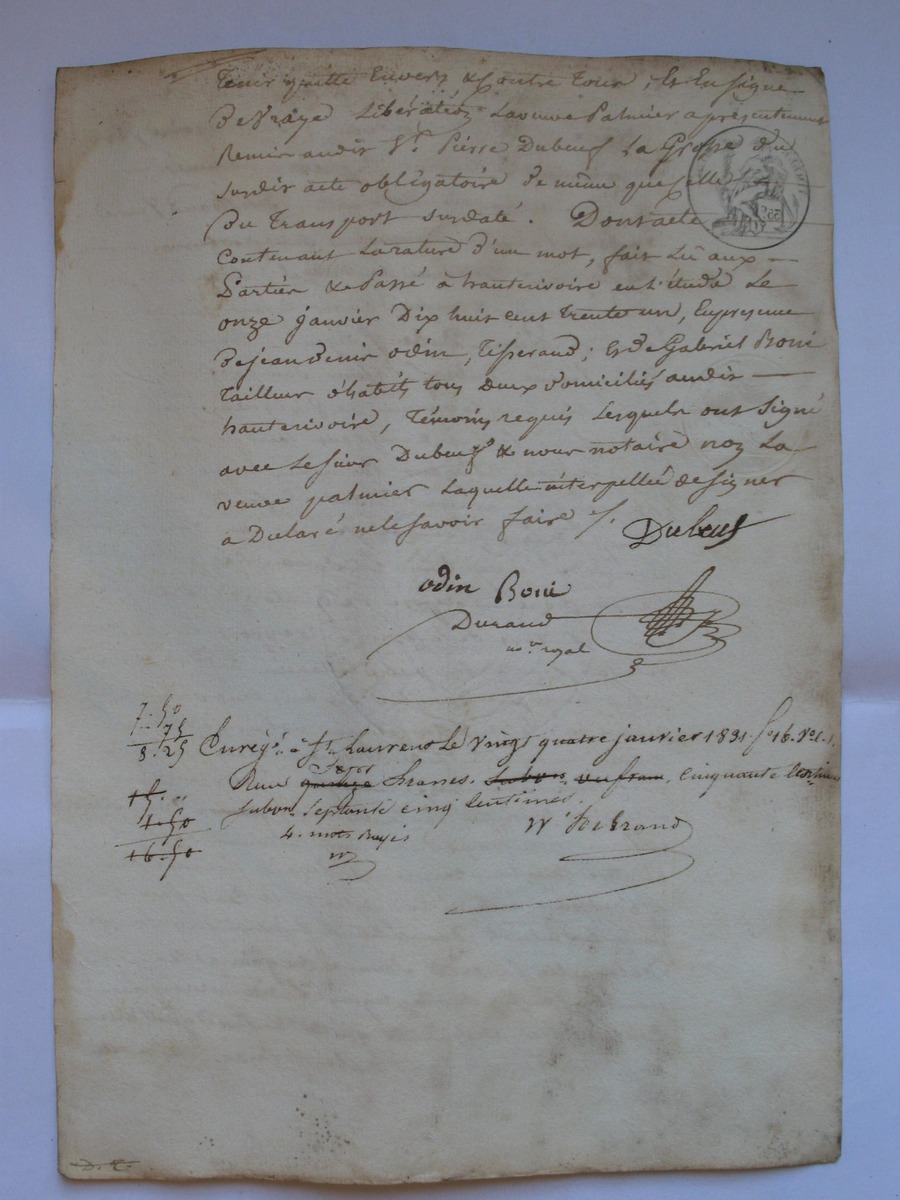 Tenir quitte Envers & Contre Tous, Et En Signe
De Vraye Libération Laveuve Palmier aprésentement
Remis audit Sr. Pierre Dubeuf La Grosse du
susdit acte obligatoire De même que Celle
Du Transport susdaté. Dont acte
Contenant Larature D'un mot, fait Lû aux
Parties & Passé à hauterivoire en l'étude Le
onze janvier Dix huit cent trente un, En présence
De jean Denis odin, Tisserand; Et De Gabriel Boni
Tailleur d'habits tous Deux Domiciliés audit
hauterivoire, Témoins requis Lesquels ont Signé
avec Lesieur Dubeuf & nous notaire non La
veuve palmier Laquelle interpellée De signer
a Déclaré ne le savoir faire /.
Dubeuf
odin Boni
Durand
nore. royal
7. 50
75
8. 25
Enregt. à St. Laurent Le vingt quatre janvier 1831. fo 16. Vo c. 1.
Sept
Reçu francs. cinquante Centimes
subvn. Septante cinq Centimes.
15. "
1. 50
16. 50
4. mots Rayés
D. T.